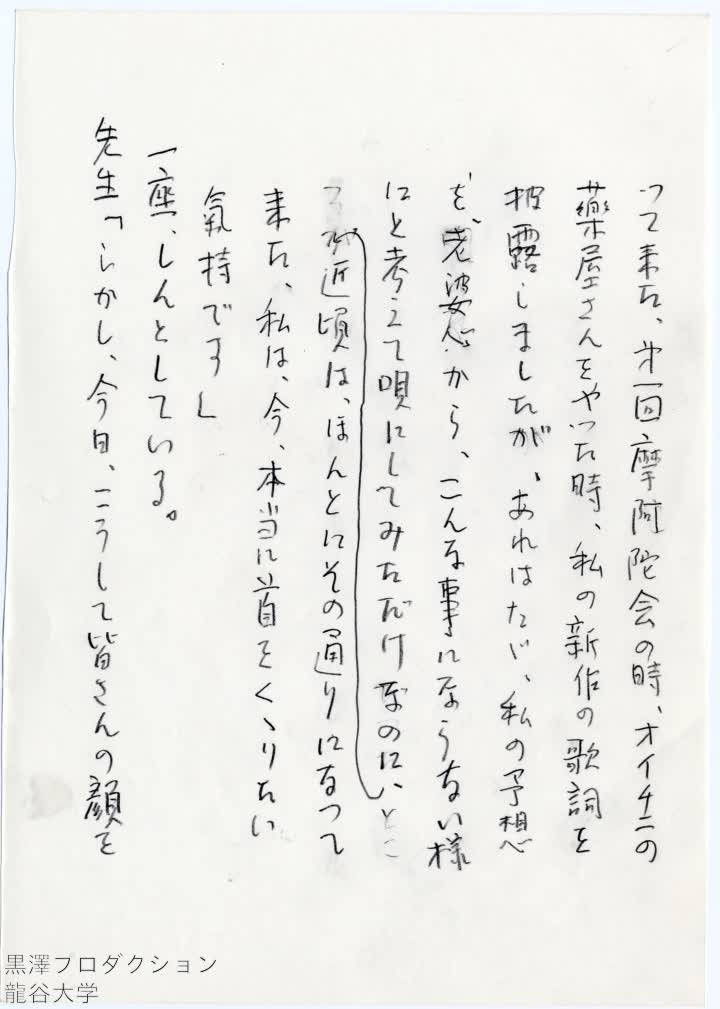 って来た、第一回摩阿陀会の時、オイチニの
薬屋さんをやった時、私の新作の歌詞を
披露しましたが、あれはたゞ、私の予想
を、老婆心から、こんな事にならない様
にと考えて唄にしてみたゞけなのに、とこ
ろが近頃は、ほんとにその通りになつて
来た、私は、今、本当に首をくゝりたい
氣持です」
一座、しんとしている。
先生「しかし、今日、こうして皆さんの顔を
黒澤プロダクション
龍谷大学